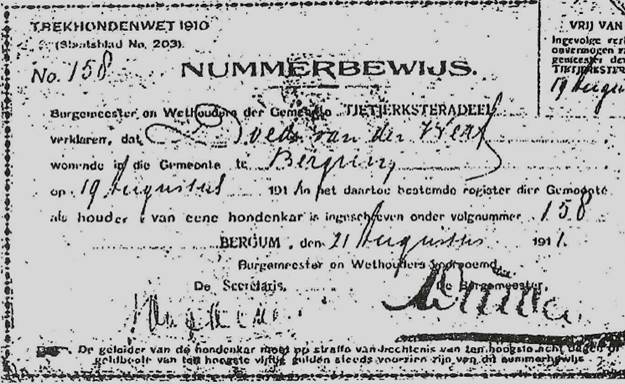 TREKHONDENWET 1910
(Staatsblad No. 203).
No. 158
NUMMERBEWIJS.
Burgemeester en Wethouders der Gemeente TJETJERKSTERADEEL
verklaren, dat van der Werf
wonende in die Gemeente te Bergum
op 19 Augustus 1911 in het daartoe bestemde register dier Gemeente
als houder van eene hondenkar is ingeschreven onder volgnummer 158
BERGUM, den 21 Augustus 1911.
Burgemeester en Wethouders voornoemd,
De Secretaris. De Burgemeester.
De geleider van de hondenkar moet op straffe van hechtenis van ten hoogste acht dagen of
geldboete van ten hoogste vijftig gulden steeds voorzien zijn van dit nummerbewijs
VRIJ VAN
Ingevolge
onvermogen
gemeente
TJETJERKSTER
19 Augustus